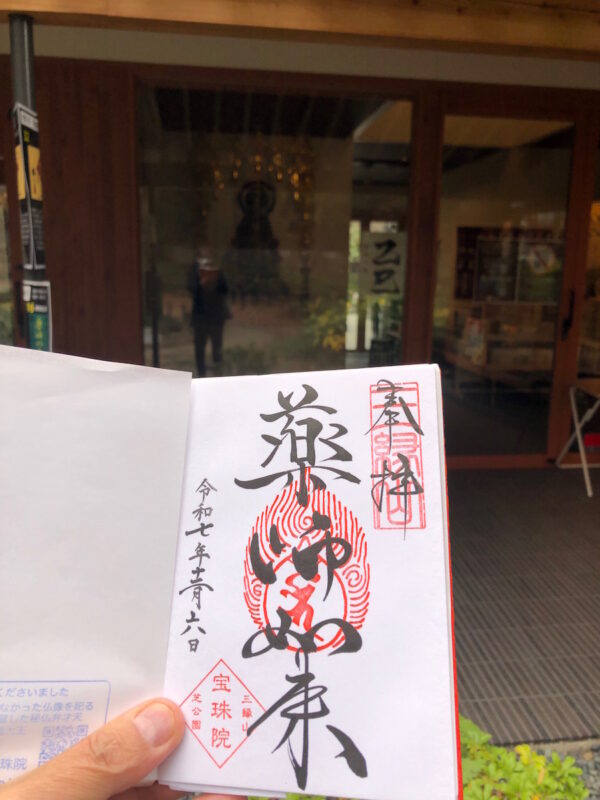 奉拝
三縁山
薬師如来
令和七年十二月六日
三縁山
宝珠院
芝公園
乙巳
くださいました
なかった仏像を祀る
した秘仏弁才天
珠院